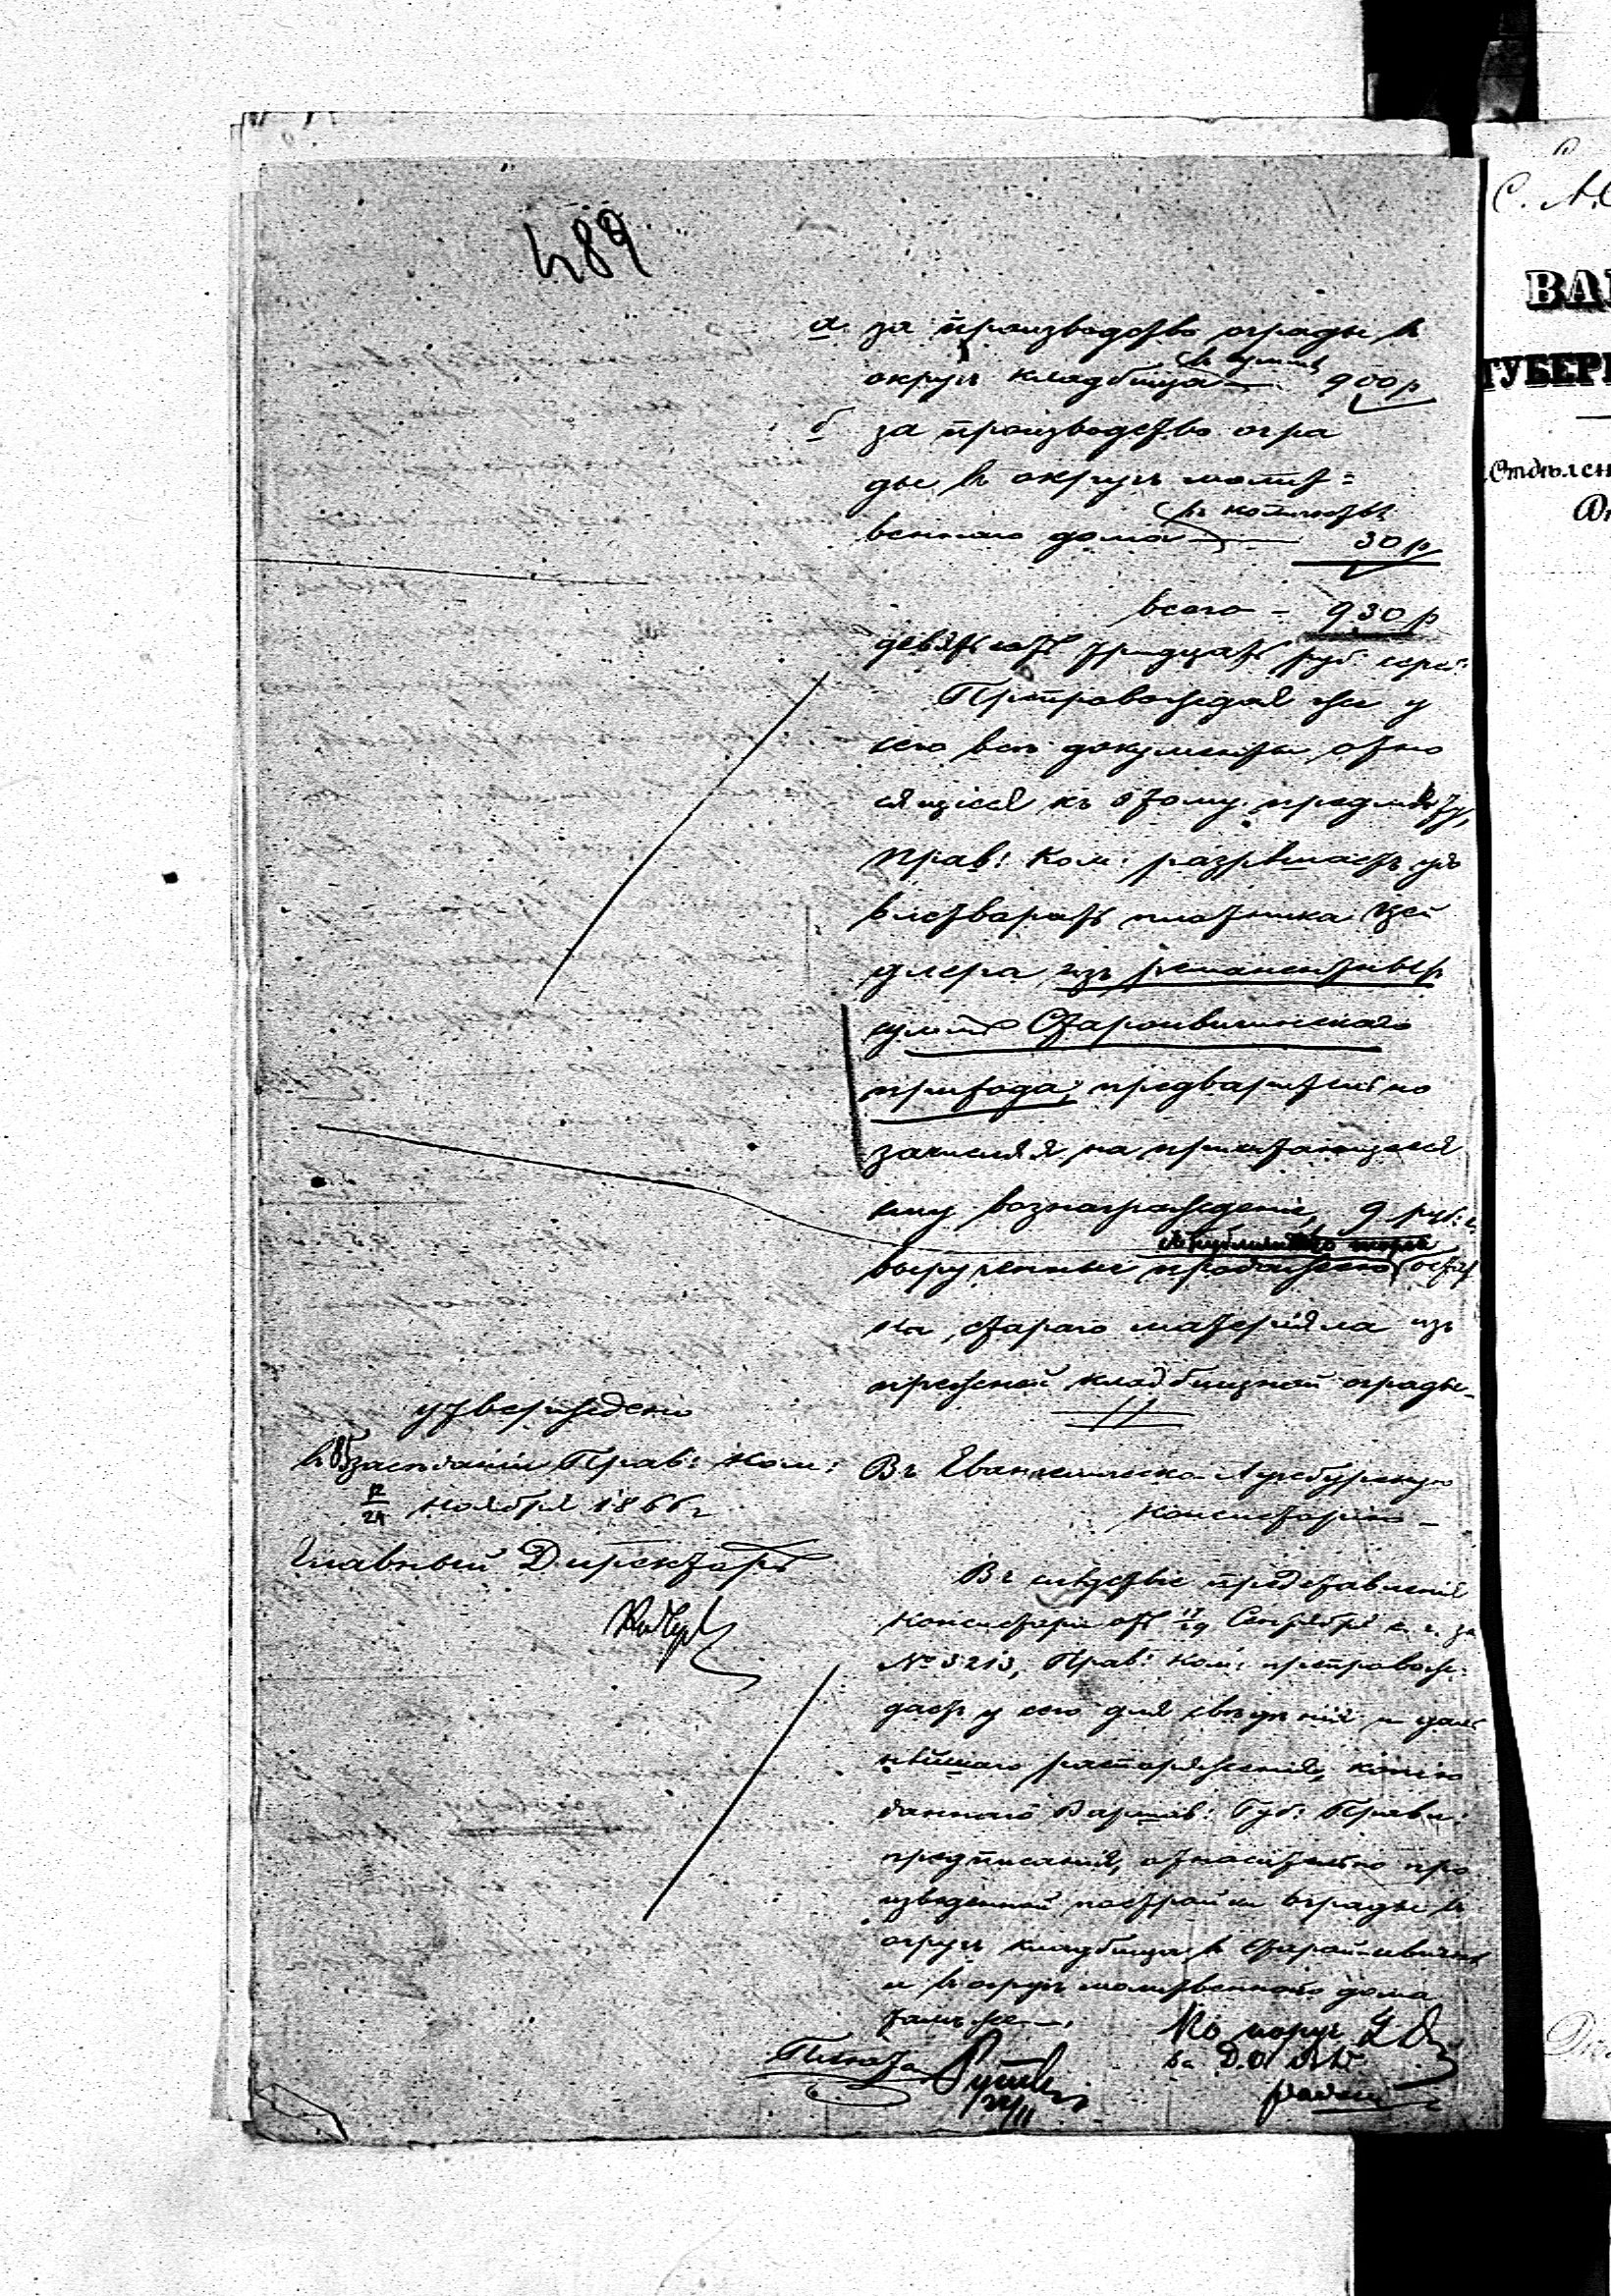 489
а. за производство ограды въ
округѣ кладбища въ суммѣ 900 р
б за производство огра
ды въ округѣ молит=
веннаго дома въ количествѣ 30 р
всего - 930 р
девятьсотъ тридцать руб: сереб:
Препровождая же у
сего всѣ документы, отно
сящіеся къ этому предмету,
Прав: Ком: разрѣшаетъ удо
влетворить плотника Цей
длера изъ реманентныхъ
суммъ Староивичинскаго
прихода, предварительно
зачисляя на причитающееся
ему вознагражденіе, 9 руб: с.
вырученные продажею остат
ка стараго матеріяла изъ
прежней кладбищной ограды.
утверждено
въ засѣданіи Прав: Ком:
12/24 Ноября 1866 г.
Главный Директоръ
Въ Евангелическо-Аугсбургскую
Консисторію -
Въ слѣдствіе представленія
Консисторіи отъ 17/29 Сентября с. г. за
№ 3213, Прав: Ком: препровож-
даетъ у сего для свѣдѣнія и даль
нѣйшаго распоряженія, копію
даннаго Варшав: Губ: Правл:
предписанія, относительно про
изведенной постройки ограды въ
округѣ кладбища въ Старой-Ивичнѣ
и въ округѣ молитвеннаго дома
тамъ же.
С. А.
ВАР
ГУБЕРН
Отдѣлен